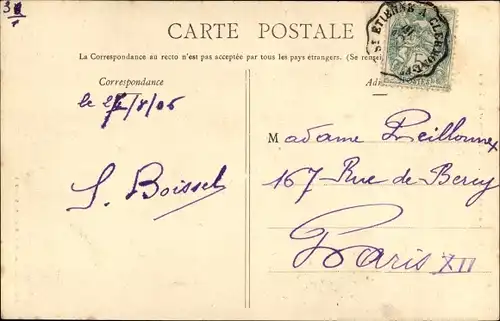 CARTE POSTALE
ST ETIENNE A CLERMONT
La Correspondance au recto n'est pas acceptée par tous les pays étrangers. (Se rensei
Correspondance
Adr
le 2 /8/06
S. Boissel
Madame
167 Rue de Bercy
Paris XII